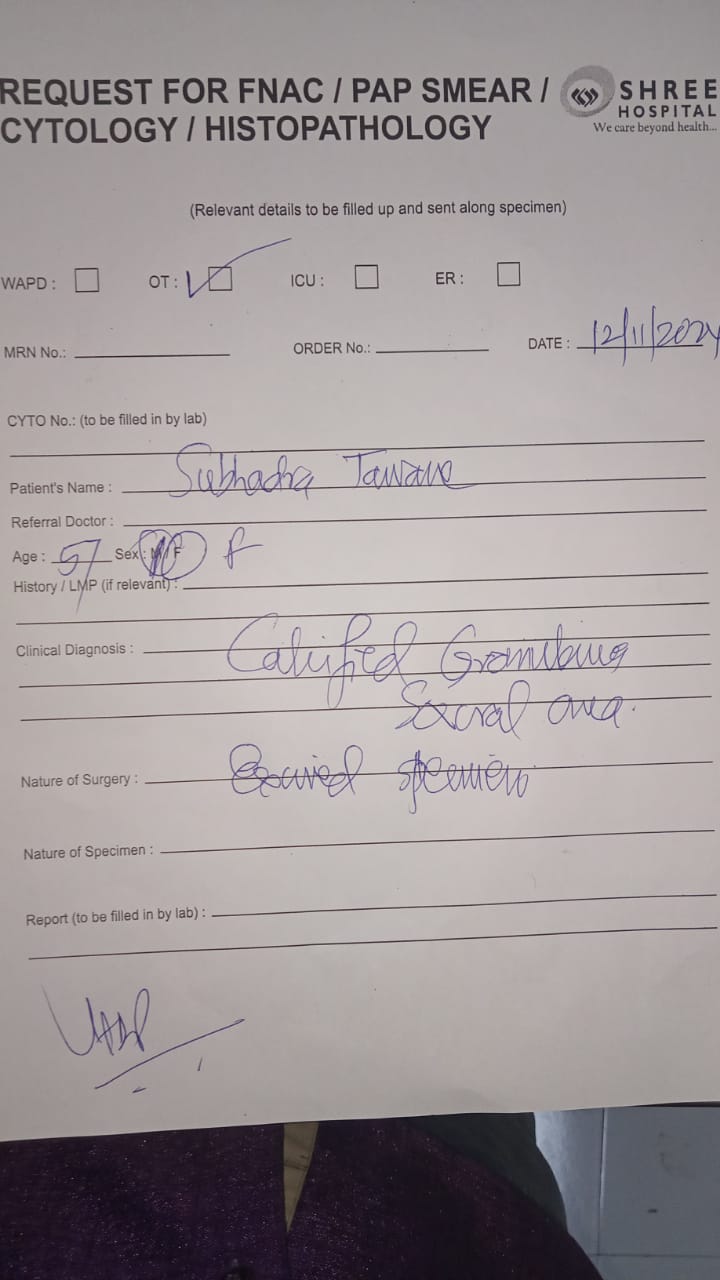 REQUEST FOR FNAC / PAP SMEAR /
CYTOLOGY / HISTOPATHOLOGY
SHREE
HOSPITAL
We care beyond health...
(Relevant details to be filled up and sent along specimen)
WAPD : OT : ICU : ER :
MRN No.: ORDER No.: DATE : 12/11/2024
CYTO No.: (to be filled in by lab)
Patient's Name : Subhadra
Referral Doctor :
Age : 57 Sex : M / F F
History / LMP (if relevant) :
Clinical Diagnosis : Calcified
Sacral area.
Nature of Surgery : Excised specimen
Nature of Specimen :
Report (to be filled in by lab) :